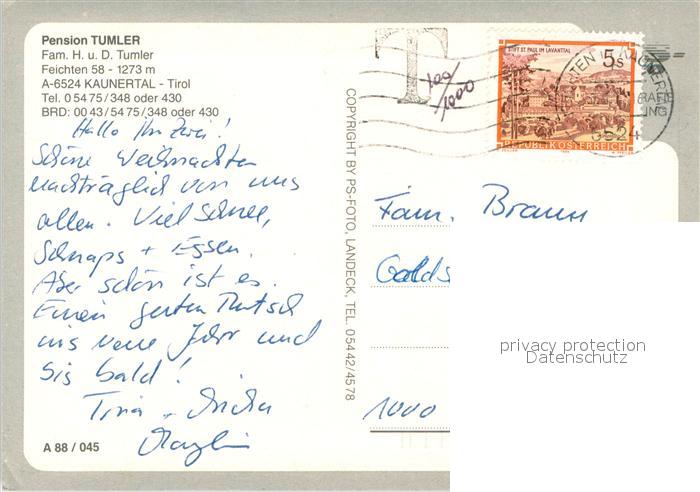 Pension TUMLER
Fam. H. u. D. Tumler
Feichten 58 - 1273 m
A-6524 KAUNERTAL - Tirol
Tel. 0 54 75 / 348 oder 430
BRD: 00 43 / 54 75 / 348 oder 430
Hallo Ihr zwei!
Schöne Weihnachten
nachträglich von uns
allen. Viel Schnee,
Schnaps + Essen.
Aber schön ist es.
Einen guten Rutsch
ins neue Jahr und
bis bald!
Tina
A 88 / 045
COPYRIGHT BY PS-FOTO, LANDECK, TEL. 05442/4578
T
100/1000
STIFT ST. PAUL IM LAVANTTAL
5 s
REPUBLIK ÖSTERREICH
6524
Fam. Braun
Golds
1000
privacy protection
Datenschutz